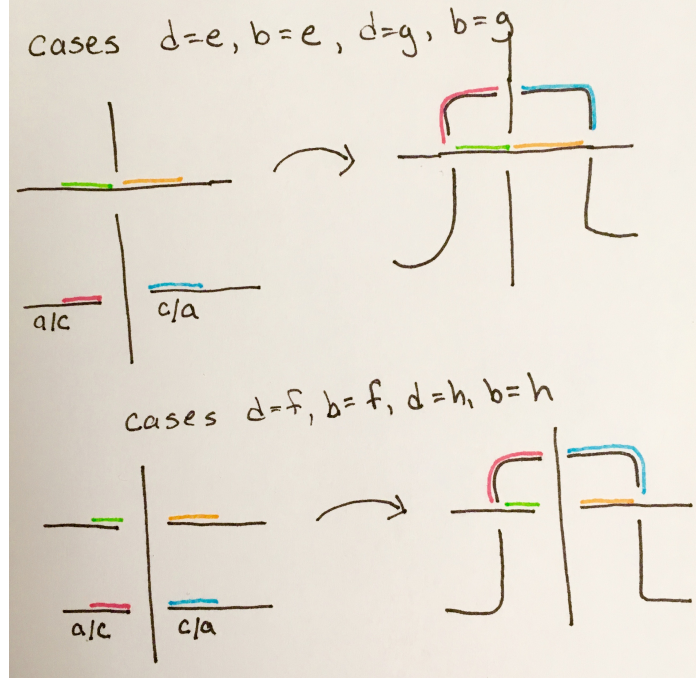 cases d=e, b=e, d=g, b=g
a/c c/a
cases d=f, b=f, d=h, b=h
a/c c/a